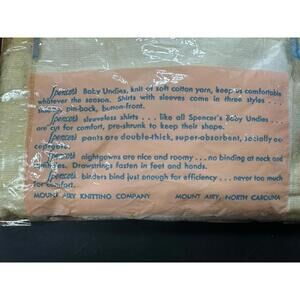 Spencer's Baby Undies, knit of soft cotton yarn, keep us comfortable
whatever the season. Shirts with sleeves come in three styles . . .
pin-back, button-front.
Spencer's sleeveless shirts . . . like all Spencer's Baby Undies . . .
are cut for comfort, pre-shrunk to keep their shape.
Spencer's pants are double-thick, super-absorbent, socially

Spencer's nightgowns are nice and roomy . . . no binding at neck and
Drawstrings fasten in feet and hands.
Spencer's binders bind just enough for efficiency . . . never too much
for comfort.
MOUNT AIRY KNITTING COMPANY MOUNT AIRY, NORTH CAROLINA